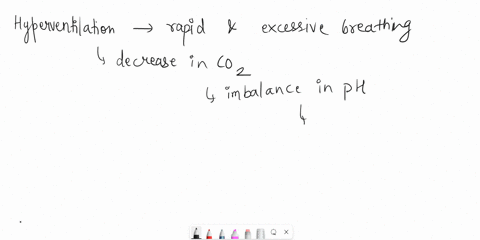 Hyperventilation → rapid & excessive breathing
↳ decrease in CO2
↳ imbalance in pH
↳